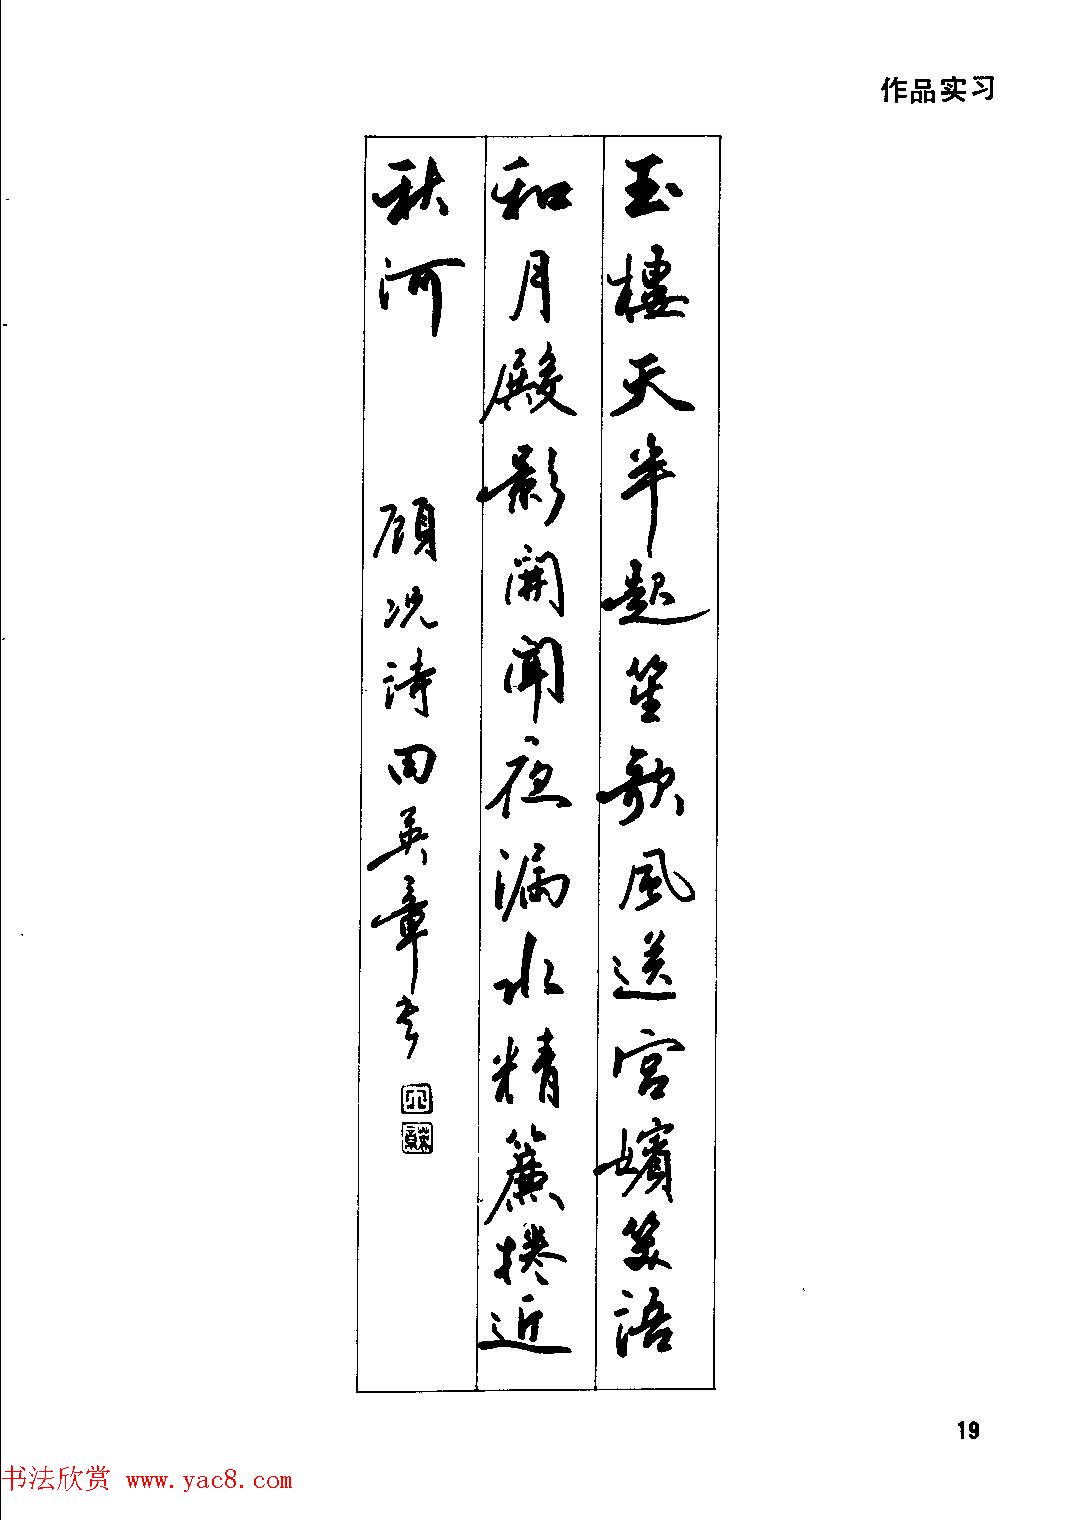 作品实习
玉樓天半起笙歌風送宮嬪笑語
和月殿影開聞夜漏水精簾捲近
秋河
顧况詩田英章书
19
书法欣赏 www.yac8.com